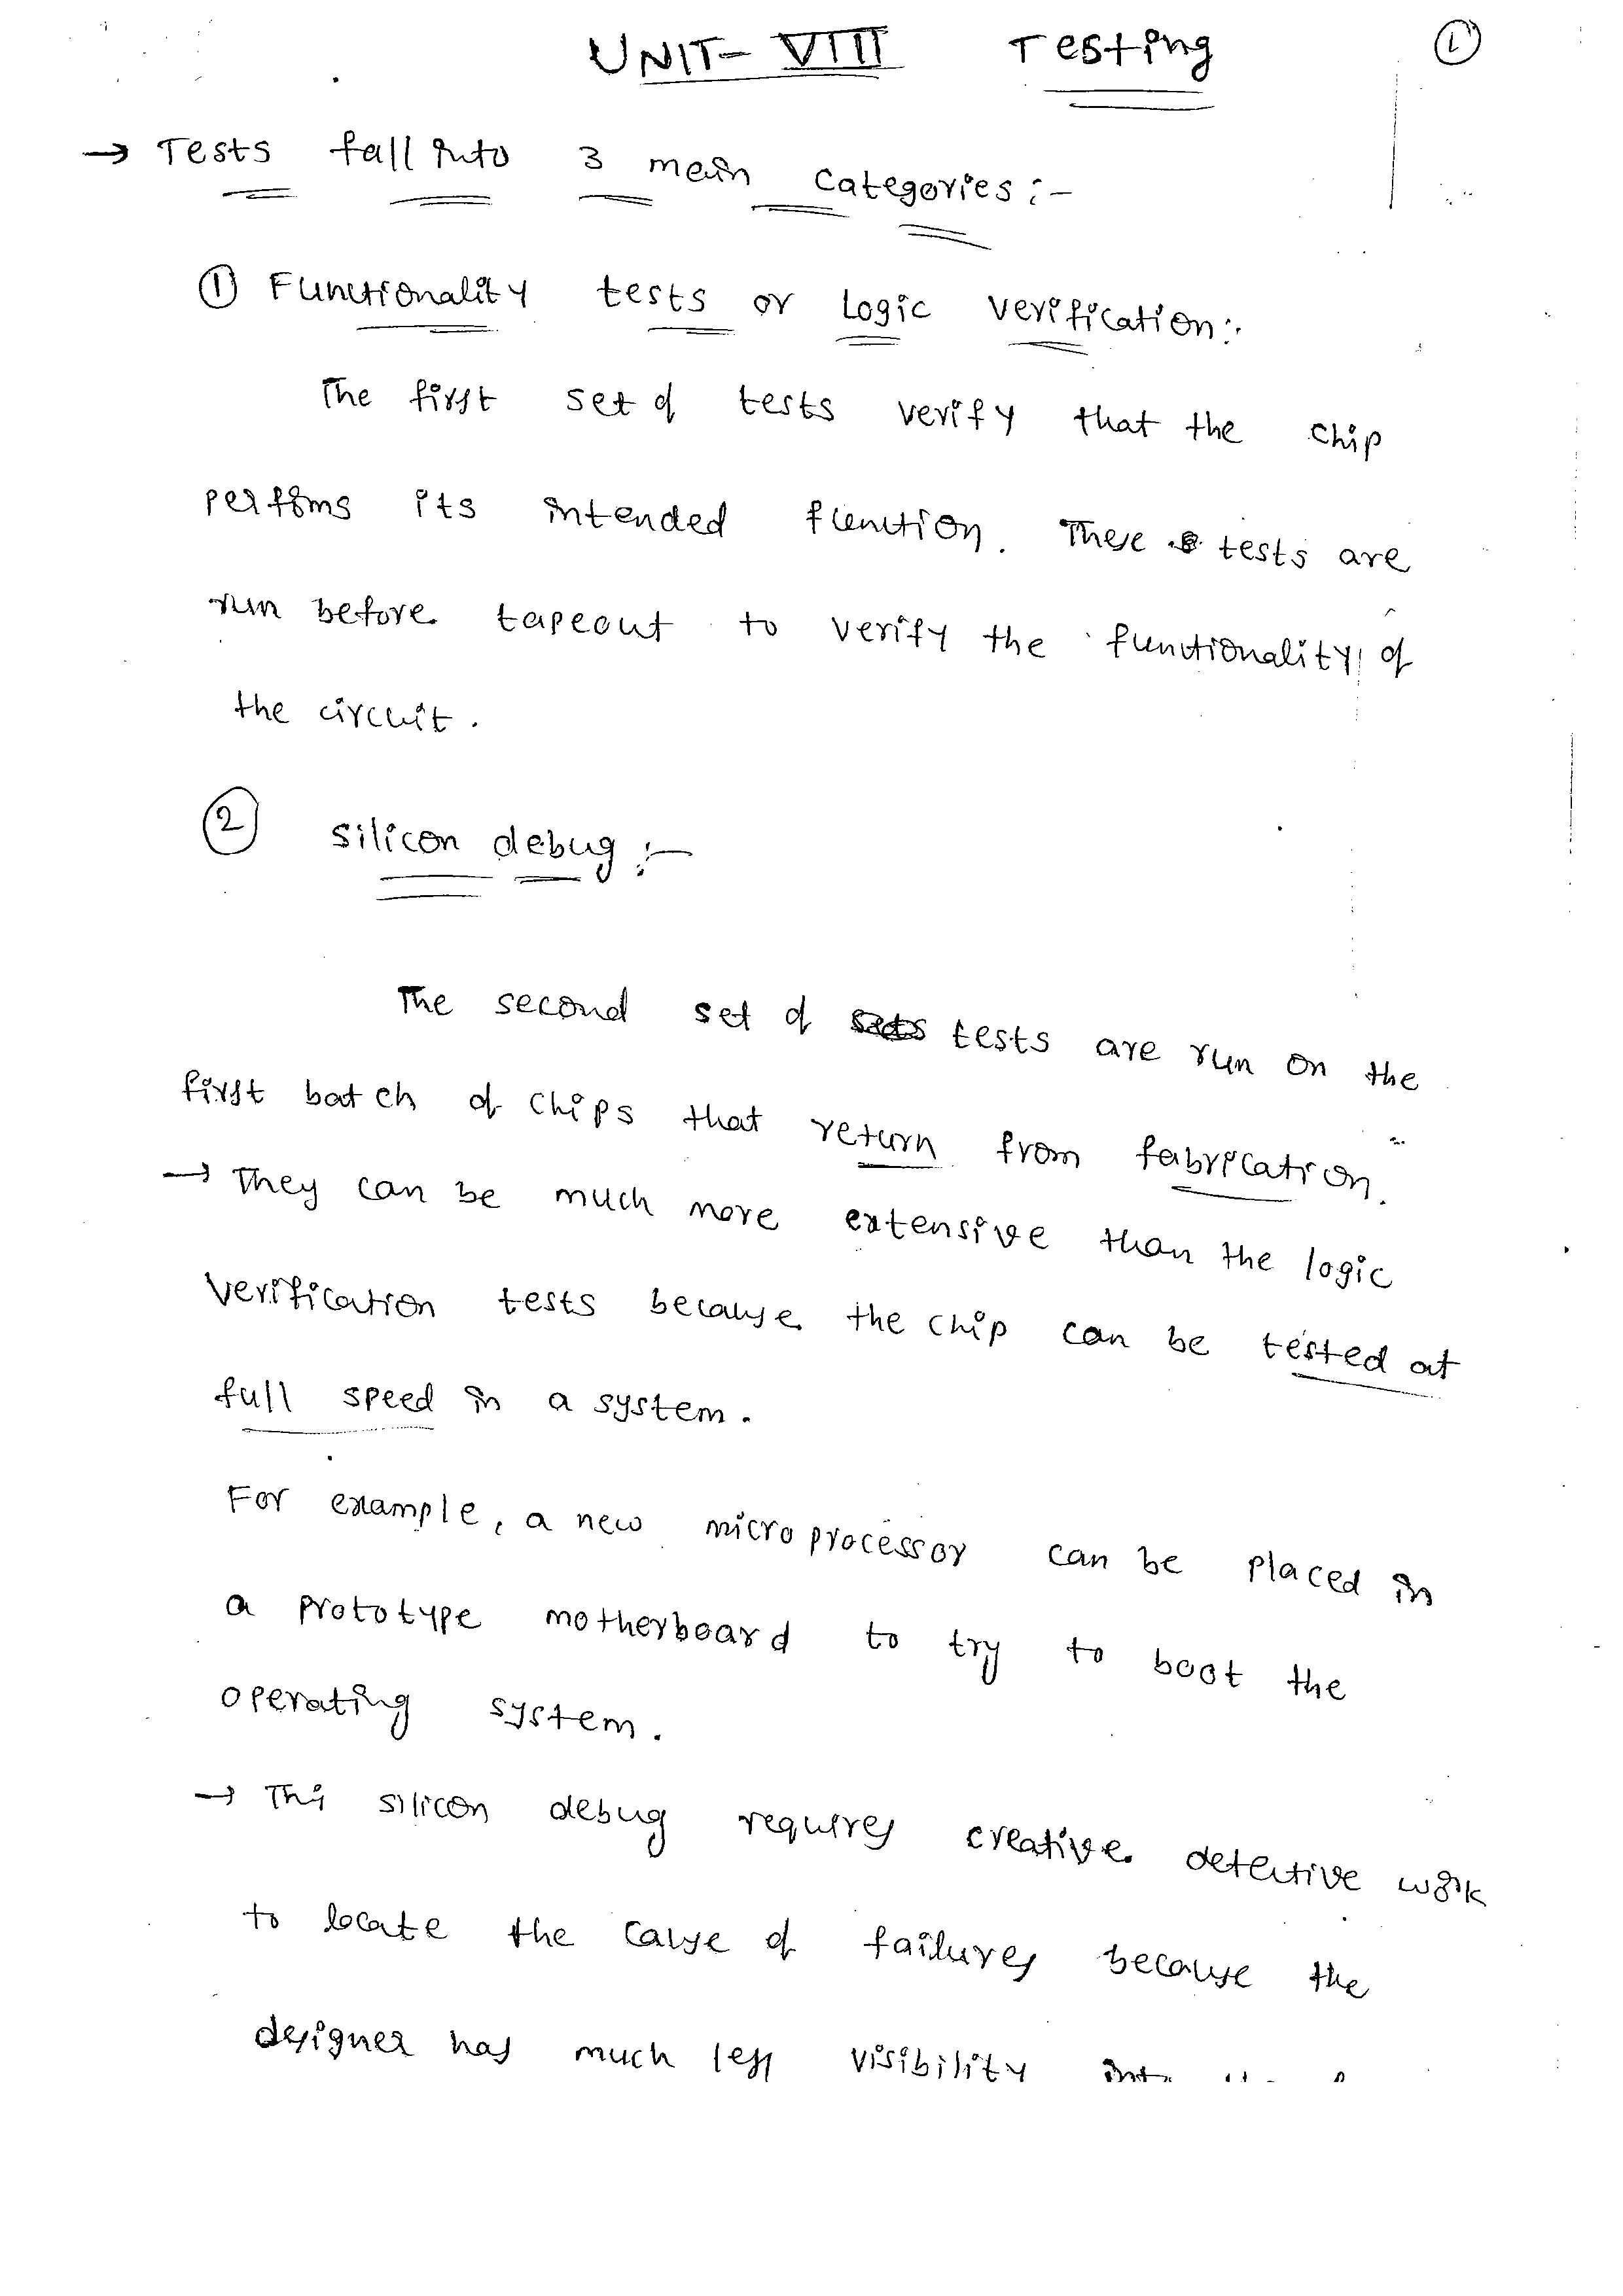 UNIT- VIII Testing ①
→ Tests fall into 3 main categories :-
① Functionality tests or Logic verification :-
The first set of tests verify that the chip
performs its intended function. These tests are
run before tapeout to verify the functionality of
the circuit.
② silicon debug :-
The second set of tests are run on the
first batch of chips that return from fabrication.
→ They can be much more extensive than the logic
verification tests because the chip can be tested at
full speed in a system.
For example, a new microprocessor can be placed in
a prototype motherboard to try to boot the
operating system.
→ This silicon debug requires creative detective work
to locate the cause of failures because the
designer has much less visibility